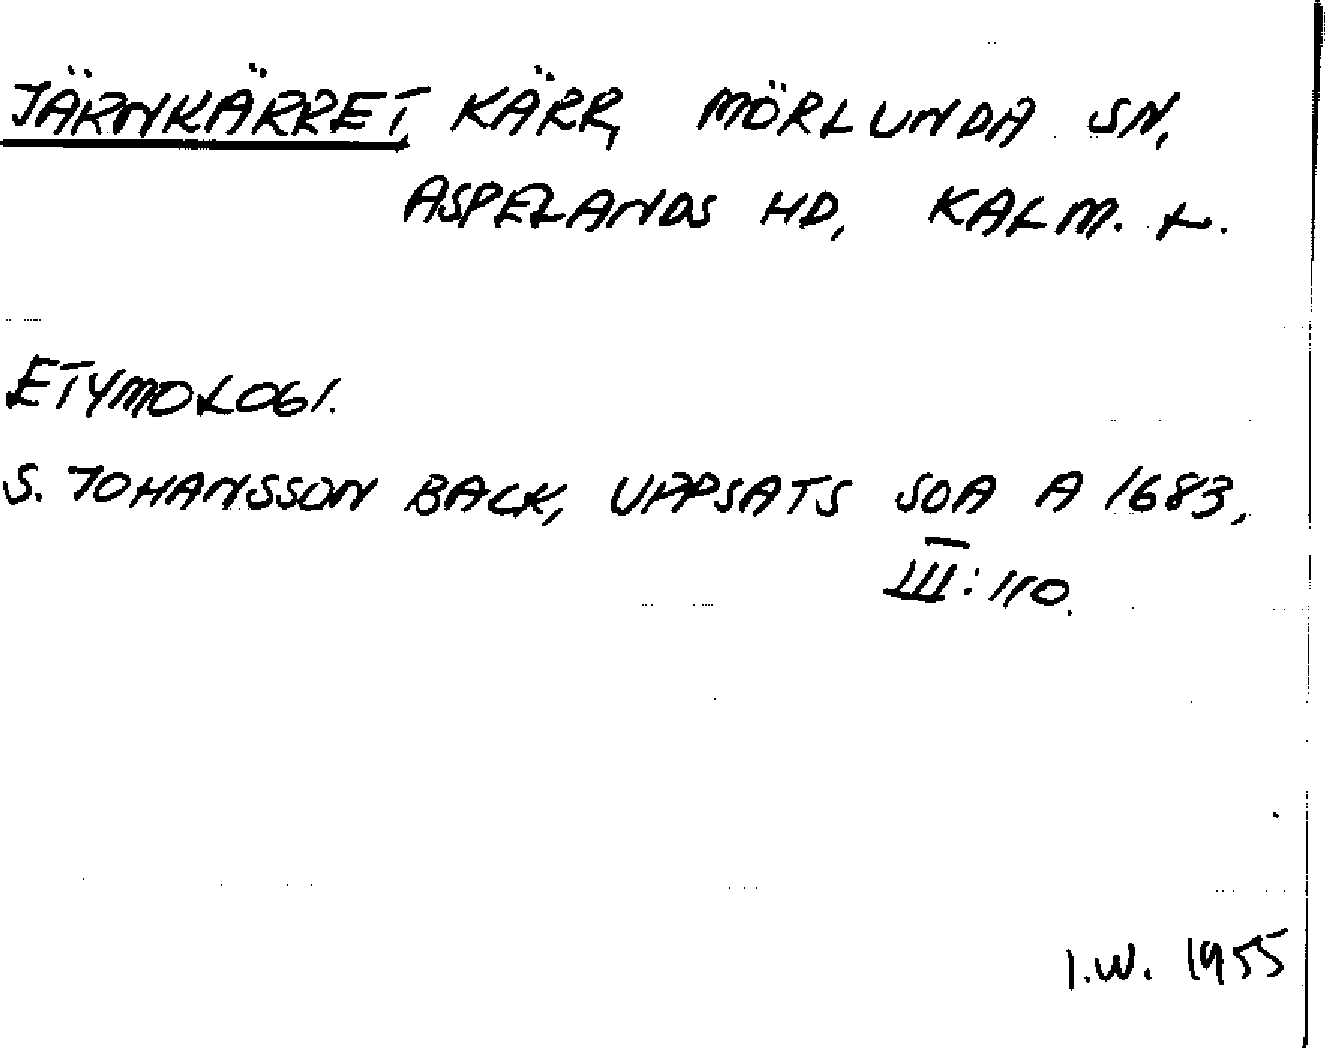 JÄRNKÄRRET, KÄRR, MÖRLUNDA SN,
ASPELANDS HD, KALM. L.
ETYMOLOGI.
S. JOHANSSON BACK, UPPSATS SOA A 1683,
III: 110.
I.W. 1955